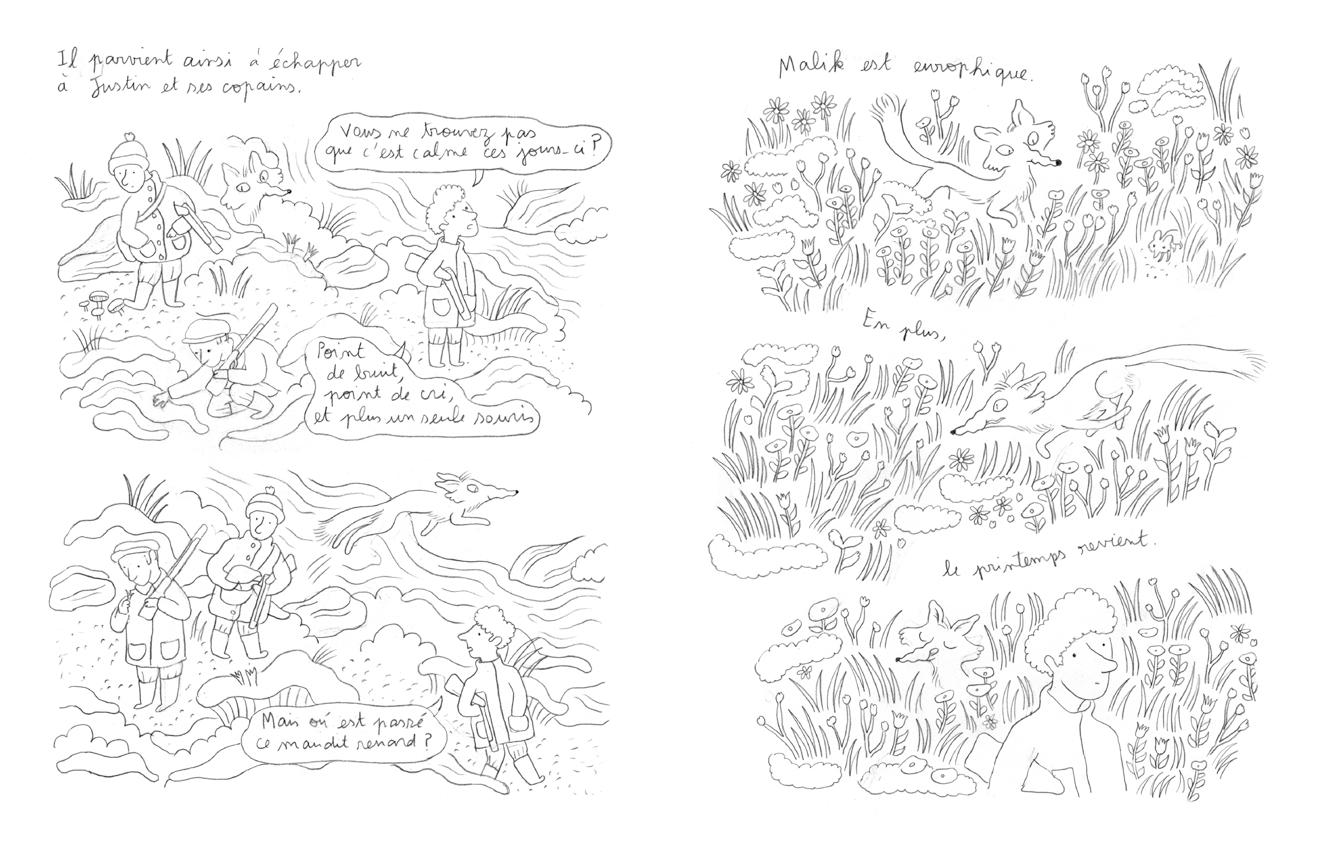 Il parvient ainsi à échapper
à Justin et ses copains.
Vous ne trouvez pas
que c'est calme ces jours-ci?
Point
de bruit,
point de cri,
et plus un seule souris
Mais où est passé
ce maudit renard?
Malik est europhique.
En plus,
le printemps revient.